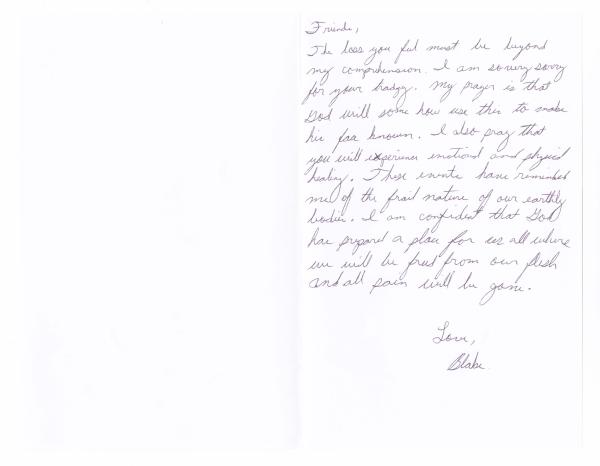 Friends,
The loss you feel must be beyond
my comprehension. I am so very sorry
for your tragedy. My prayer is that
God will some how use this to make
his face known. I also pray that
you will experience emotional and physical
healing. These events have reminded
me of the frail nature of our earthly
bodies. I am confident that God
has prepared a place for us all where
we will be freed from our flesh
and all pain will be gone.
Love,
Blake